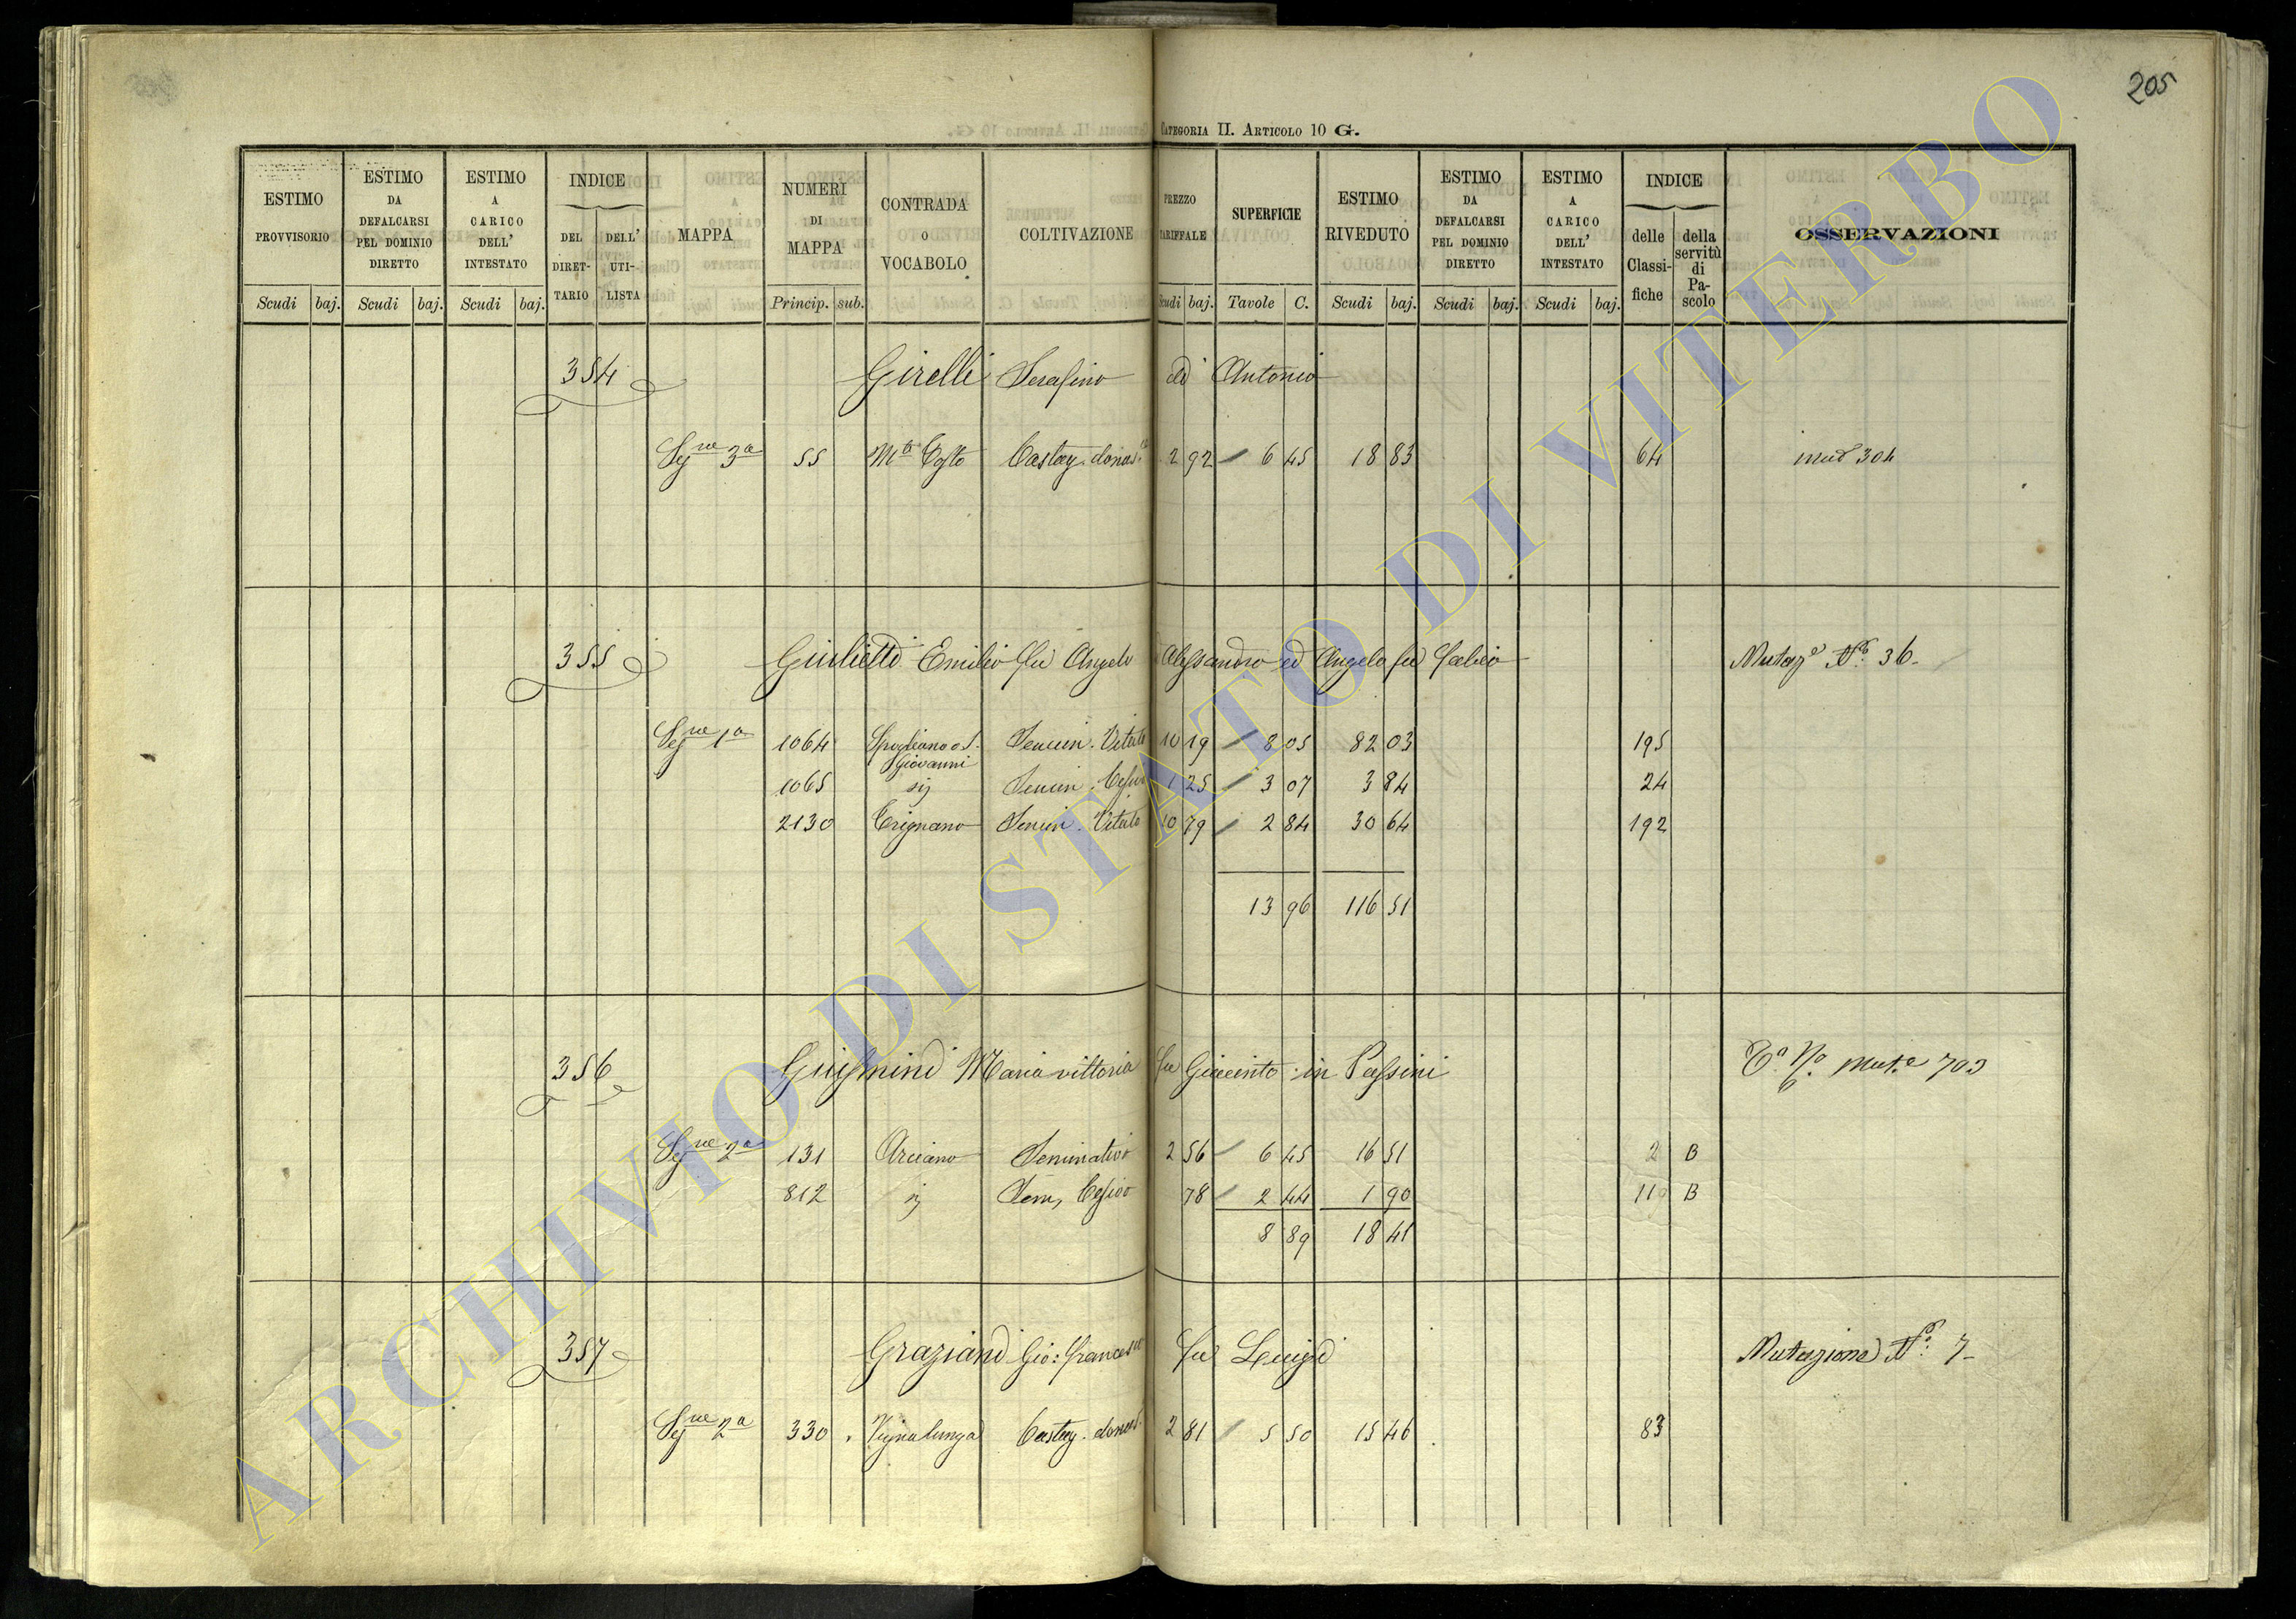 205
CATEGORIA II. ARTICOLO 10 G.
ESTIMO PROVVISORIO Scudi baj.
ESTIMO DA DEFALCARSI PEL DOMINIO DIRETTO Scudi baj.
ESTIMO A CARICO DELL' INTESTATO Scudi baj.
INDICE DEL DIRETTARIO DELL' UTILISTA
MAPPA
NUMERI DI MAPPA Princip. sub.
CONTRADA O VOCABOLO
COLTIVAZIONE
PREZZO TARIFFALE Scudi baj.
SUPERFICIE Tavole C.
ESTIMO RIVEDUTO Scudi baj.
ESTIMO DA DEFALCARSI PEL DOMINIO DIRETTO Scudi baj.
ESTIMO A CARICO DELL' INTESTATO Scudi baj.
INDICE delle Classifiche della servitù di Pascolo
OSSERVAZIONI
354 Girelli Serafino di Antonio
Sez.ne 3a 55 Castag. domes. 2 92 6 45 18 83 64 mut 304
355 Giulietti Emilio fu Angelo Alessandro ed Angelo fu Fabio Mutaz.e N.o 36
Sez.ne 1a 1064 Spogliano o S. Giovanni Semin. Vitato 10 19 8 05 82 03 195
1065 sij Semin. Cesivo 1 25 3 07 3 84 24
2130 Crignano Semin. Vitato 10 79 2 84 30 64 192
13 96 116 51
356 Maria vittoria fu Giacinto in Passini N.o Mut.e 703
Sez.ne 2a 131 Arciano Seminativo 2 56 6 45 16 51 2 B
812 sij Sem, Cesivo 78 2 44 1 90 11 B
8 89 18 41
357 Graziani Gio: Francesco fu Luigi Mutazione N.o 7
Sez.ne 2a 330 Vignalunga Castag. domes. 2 81 5 50 15 46 83
ARCHIVIO DI STATO DI VITERBO